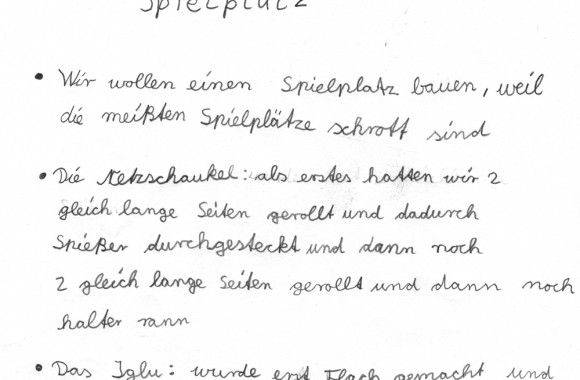 Spielplatz
• Wir wollen einen Spielplatz bauen, weil
die meißten Spielplätze schrott sind
• Die Netzschaukel: als erstes hatten wir 2
gleich lange Seiten gerollt und dadurch
Spießer durchgesteckt und dann noch
2 gleich lange Seiten gerollt und dann noch
halter rann
• Das Iglu: wurde erst Flach gemacht und